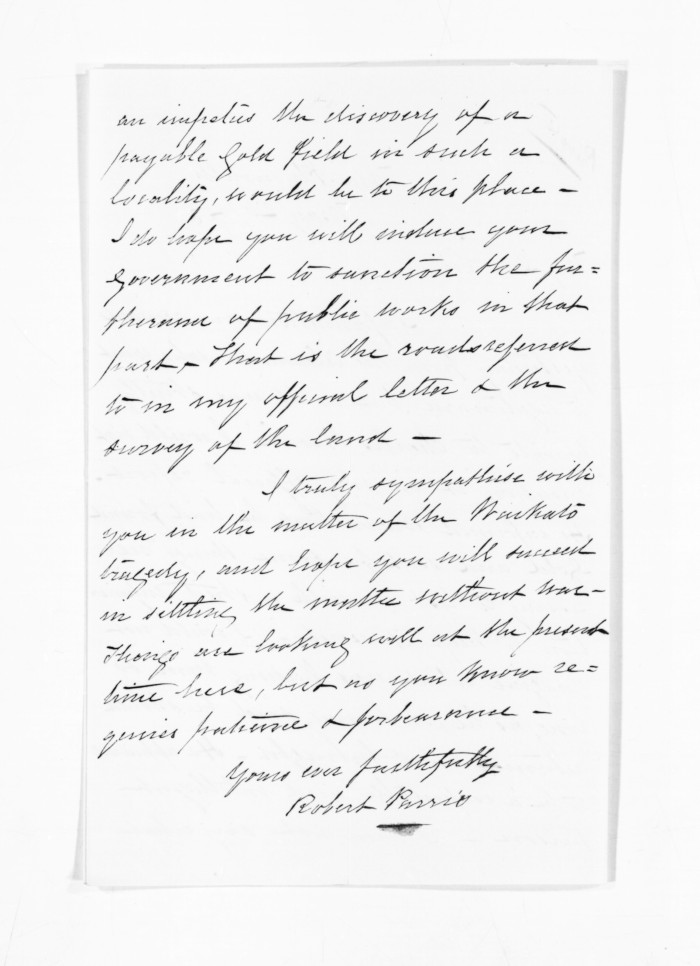 an impetus the discovery of a
payable Gold Field in such a
locality, would be to this place –
I do hope you will induce your
Government to sanction the fur=
therance of public works in that
part – that is the roads referred
to in my official letter & the
survey of the land –
I truly sympathise with
you in the matter of the Waikato
tragedy, and hope you will succeed
in settling the matter without war –
Things are looking well at the present
time here, but as you know re=
quires patience & forbearance –
Yours ever faithfully
Robert Parris